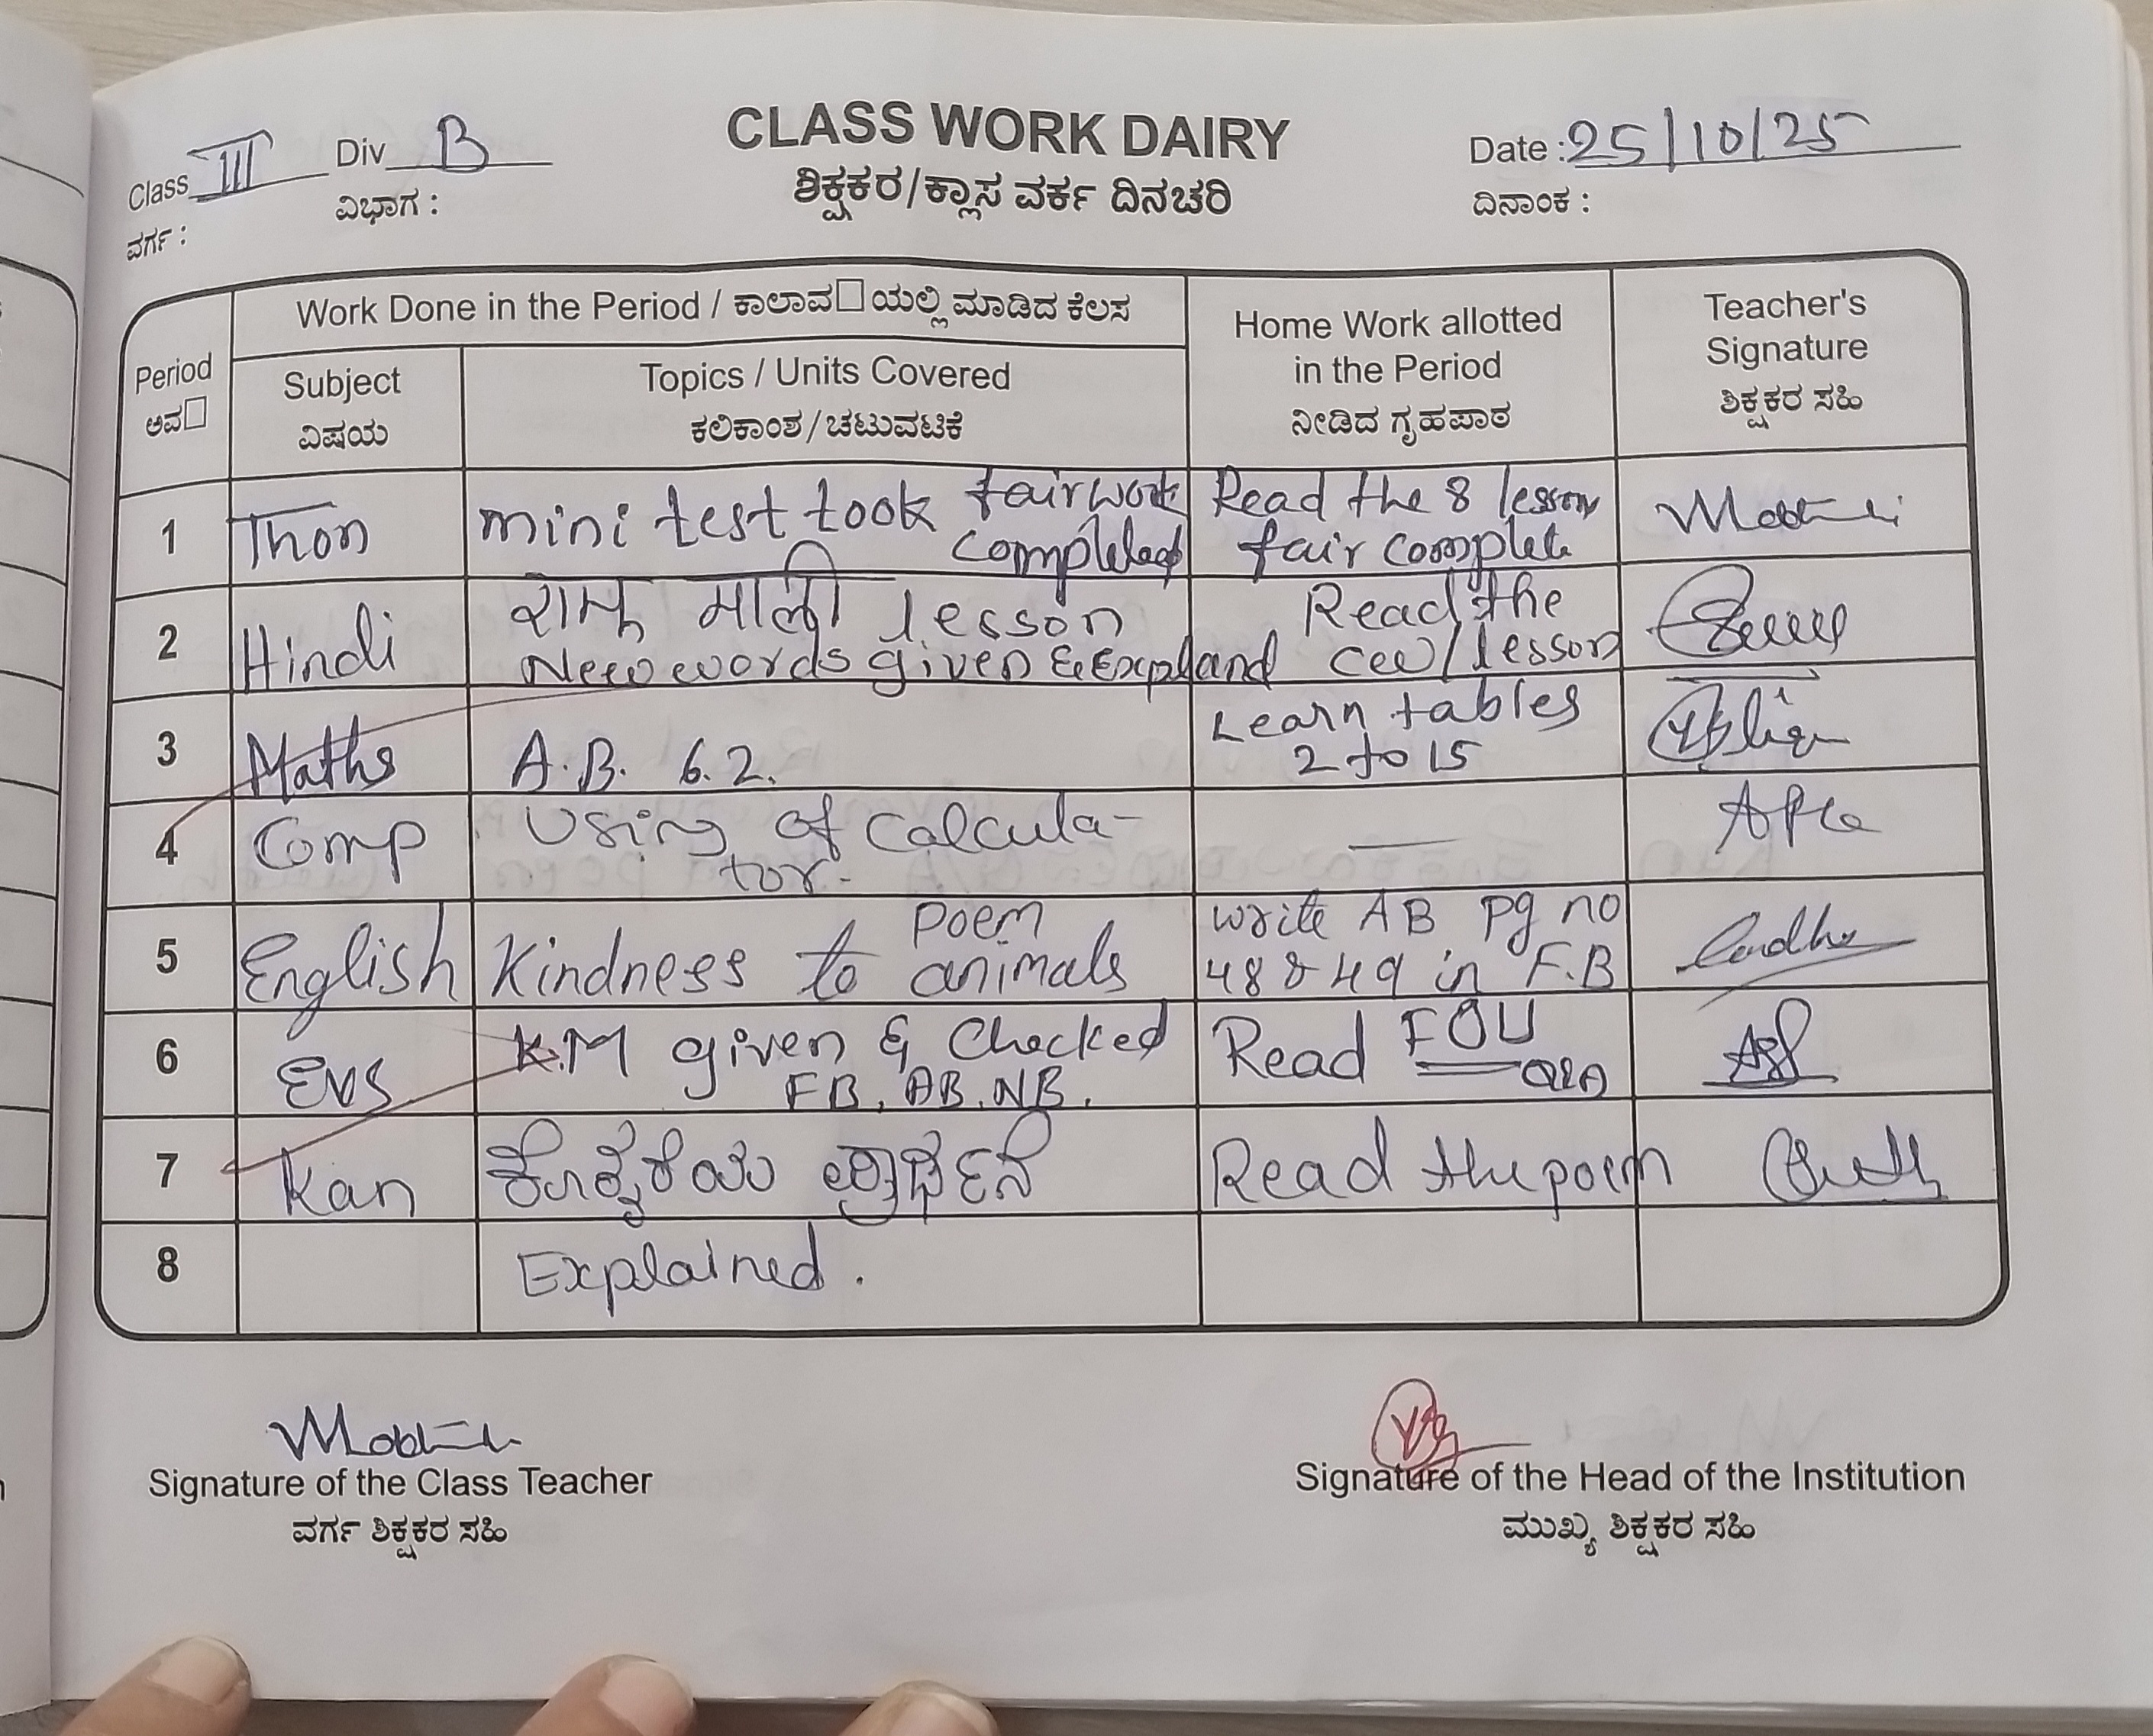 CLASS WORK DAIRY
ಶಿಕ್ಷಕರ/ಕ್ಲಾಸ ವರ್ಕ ದಿನಚರಿ
Class III Div B Date : 25/10/25
ವರ್ಗ : ವಿಭಾಗ : ದಿನಾಂಕ :
Period
ಅವ□
Work Done in the Period / ಕಾಲಾವ□ಯಲ್ಲಿ ಮಾಡಿದ ಕೆಲಸ
Subject
ವಿಷಯ
Topics / Units Covered
ಕಲಿಕಾಂಶ/ಚಟುವಟಿಕೆ
Home Work allotted
in the Period
ನೀಡಿದ ಗೃಹಪಾಠ
Teacher's
Signature
ಶಿಕ್ಷಕರ ಸಹಿ
1 Thon mini test took fairwork Read the 8 lesson
completed fair complete
2 Hindi रामू माली lesson Read the
New words given & Expland cw/lesson
3 Maths A.B. 6.2. Learn tables
2 to 15
4 Comp Using of calcula- —
tor.
5 English Kindness to animals poem write AB pg no
48 & 49 in F.B
6 EVS K.M given & Checked Read FOU
FB, AB, NB. Q&A
7 Kan ಪ್ರಾರ್ಥನೆ Read the poem
8 Explained.
Signature of the Class Teacher
ವರ್ಗ ಶಿಕ್ಷಕರ ಸಹಿ
Signature of the Head of the Institution
ಮುಖ್ಯ ಶಿಕ್ಷಕರ ಸಹಿ